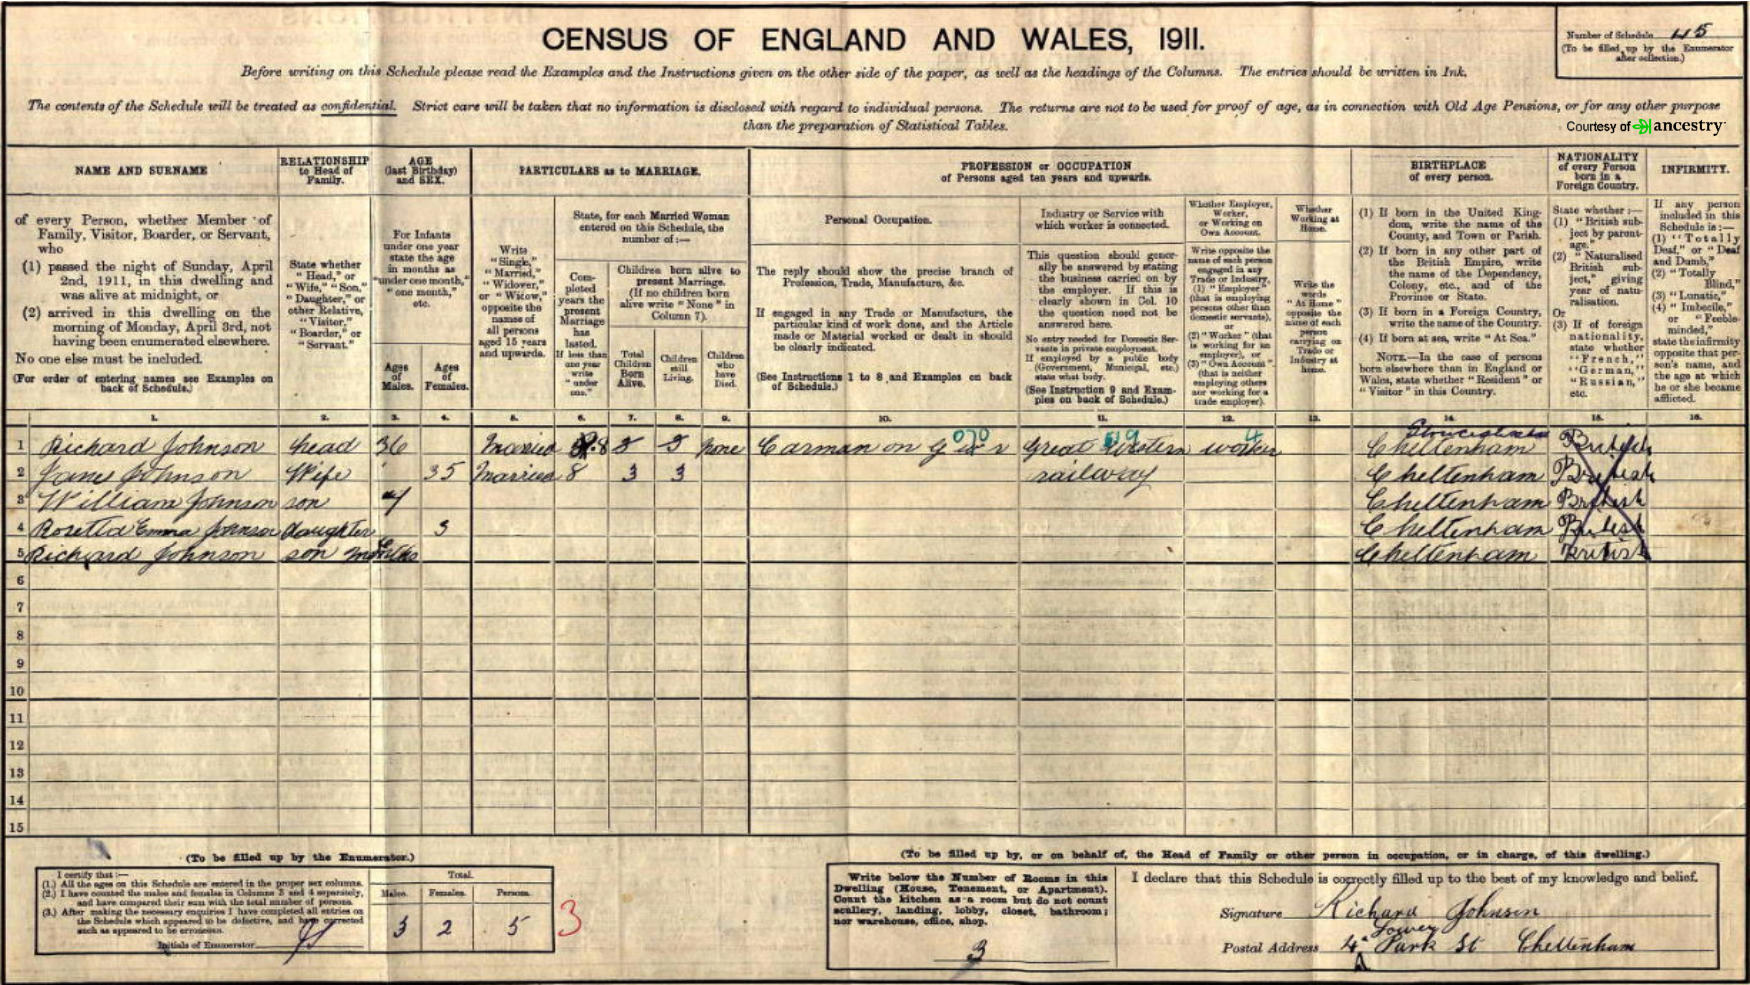 CENSUS OF ENGLAND AND WALES, 1911.
Number of Schedule 45
(To be filled up by the Enumerator
after collection.)
Before writing on this Schedule please read the Examples and the Instructions given on the other side of the paper, as well as the headings of the Columns. The entries should be written in Ink.
The contents of the Schedule will be treated as confidential. Strict care will be taken that no information is disclosed with regard to individual persons. The returns are not to be used for proof of age, as in connection with Old Age Pensions, or for any other purpose
than the preparation of Statistical Tables.
Courtesy of ancestry
NAME AND SURNAME
RELATIONSHIP
to Head of
Family.
AGE
(last Birthday)
and SEX.
PARTICULARS as to MARRIAGE.
PROFESSION or OCCUPATION
of Persons aged ten years and upwards.
BIRTHPLACE
of every person.
NATIONALITY
of every Person
born in a
Foreign Country.
INFIRMITY.
of every Person, whether Member of
Family, Visitor, Boarder, or Servant,
who
(1) passed the night of Sunday, April
2nd, 1911, in this dwelling and
was alive at midnight, or
(2) arrived in this dwelling on the
morning of Monday, April 3rd, not
having been enumerated elsewhere.
No one else must be included.
(For order of entering names see Examples on
back of Schedule.)
State whether
"Head," or
"Wife," "Son,"
"Daughter," or
other Relative,
"Visitor,"
"Boarder," or
"Servant."
For Infants
under one year
state the age
in months as
"under one month,"
"one month,"
etc.
Ages
of
Males.
Ages
of
Females.
Write
"Single,"
"Married,"
"Widower,"
or "Widow,"
opposite the
names of
all persons
aged 15 years
and upwards.
State, for each Married Woman
entered on this Schedule, the
number of:—
Completed
years the
present
Marriage
has
lasted.
If less than
one year
write
"under
one."
Children born alive to
present Marriage.
(If no children born
alive write "None" in
Column 7).
Total
Children
Born
Alive.
Children
still
Living.
Children
who
have
Died.
Personal Occupation.
The reply should show the precise branch of
Profession, Trade, Manufacture, &c.
If engaged in any Trade or Manufacture, the
particular kind of work done, and the Article
made or Material worked or dealt in should
be clearly indicated.
(See Instructions 1 to 8 and Examples on back
of Schedule.)
Industry or Service with
which worker is connected.
This question should generally
be answered by stating
the business carried on by
the employer. If this is
clearly shown in Col. 10
the question need not be
answered here.
No entry needed for Domestic Servants
in private employment.
If employed by a public body
(Government, Municipal, etc.)
state what body.
(See Instruction 9 and Examples
on back of Schedule.)
Whether Employer,
Worker,
or Working on
Own Account.
Write opposite the
name of each person
engaged in any
Trade or Industry,
(1) "Employer"
(that is employing
persons other than
domestic servants),
or
(2) "Worker" (that
is working for an
employer), or
(3) "Own Account"
(that is neither
employing others
nor working for a
trade employer).
Whether
Working at
Home.
Write the
words
"At Home"
opposite the
name of each
person
carrying on
Trade or
Industry at
home.
(1) If born in the United Kingdom,
write the name of the
County, and Town or Parish.
(2) If born in any other part of
the British Empire, write
the name of the Dependency,
Colony, etc., and of the
Province or State.
(3) If born in a Foreign Country,
write the name of the Country.
(4) If born at sea, write "At Sea."
NOTE.—In the case of persons
born elsewhere than in England or
Wales, state whether "Resident" or
"Visitor" in this Country.
State whether:—
(1) "British subject
by parentage."
(2) "Naturalised
British subject,"
giving
year of naturalisation.
Or
(3) If of foreign
nationality,
state whether
"French,"
"German,"
"Russian,"
etc.
If any person
included in this
Schedule is:—
(1) "Totally
Deaf," or "Deaf
and Dumb,"
(2) "Totally
Blind,"
(3) "Lunatic,"
(4) "Imbecile,"
or "Feeble-minded,"
state the infirmity
opposite that person's
name, and
the age at which
he or she became
afflicted.
1. 2. 3. 4. 5. 6. 7. 8. 9. 10. 11. 12. 13. 14. 15. 16.
1 Richard Johnson head 36 Married 8 none Carman on Great Western worker Cheltenham British
2 Jane Johnson Wife 35 Married 8 3 3 railway Cheltenham British
3 William Johnson son Cheltenham British
4 Rosetta Emma Johnson daughter 3 Cheltenham British
5 Richard Johnson son months Cheltenham British
6
7
8
9
10
11
12
13
14
15
(To be filled up by the Enumerator.)
I certify that:—
(1.) All the ages on this Schedule are entered in the proper sex columns.
(2.) I have counted the males and females in Columns 3 and 4 separately,
and have compared their sum with the total number of persons.
(3.) After making the necessary enquiries I have completed all entries on
the Schedule which appeared to be defective, and have corrected
such as appeared to be erroneous.
Initials of Enumerator
Total.
Males. Females. Persons.
3 2 5
3
(To be filled up by, or on behalf of, the Head of Family or other person in occupation, or in charge, of this dwelling.)
Write below the Number of Rooms in this
Dwelling (House, Tenement, or Apartment).
Count the kitchen as a room but do not count
scullery, landing, lobby, closet, bathroom;
nor warehouse, office, shop.
3
I declare that this Schedule is correctly filled up to the best of my knowledge and belief.
Signature Richard Johnson
Lower
Postal Address 4 Park St Cheltenham